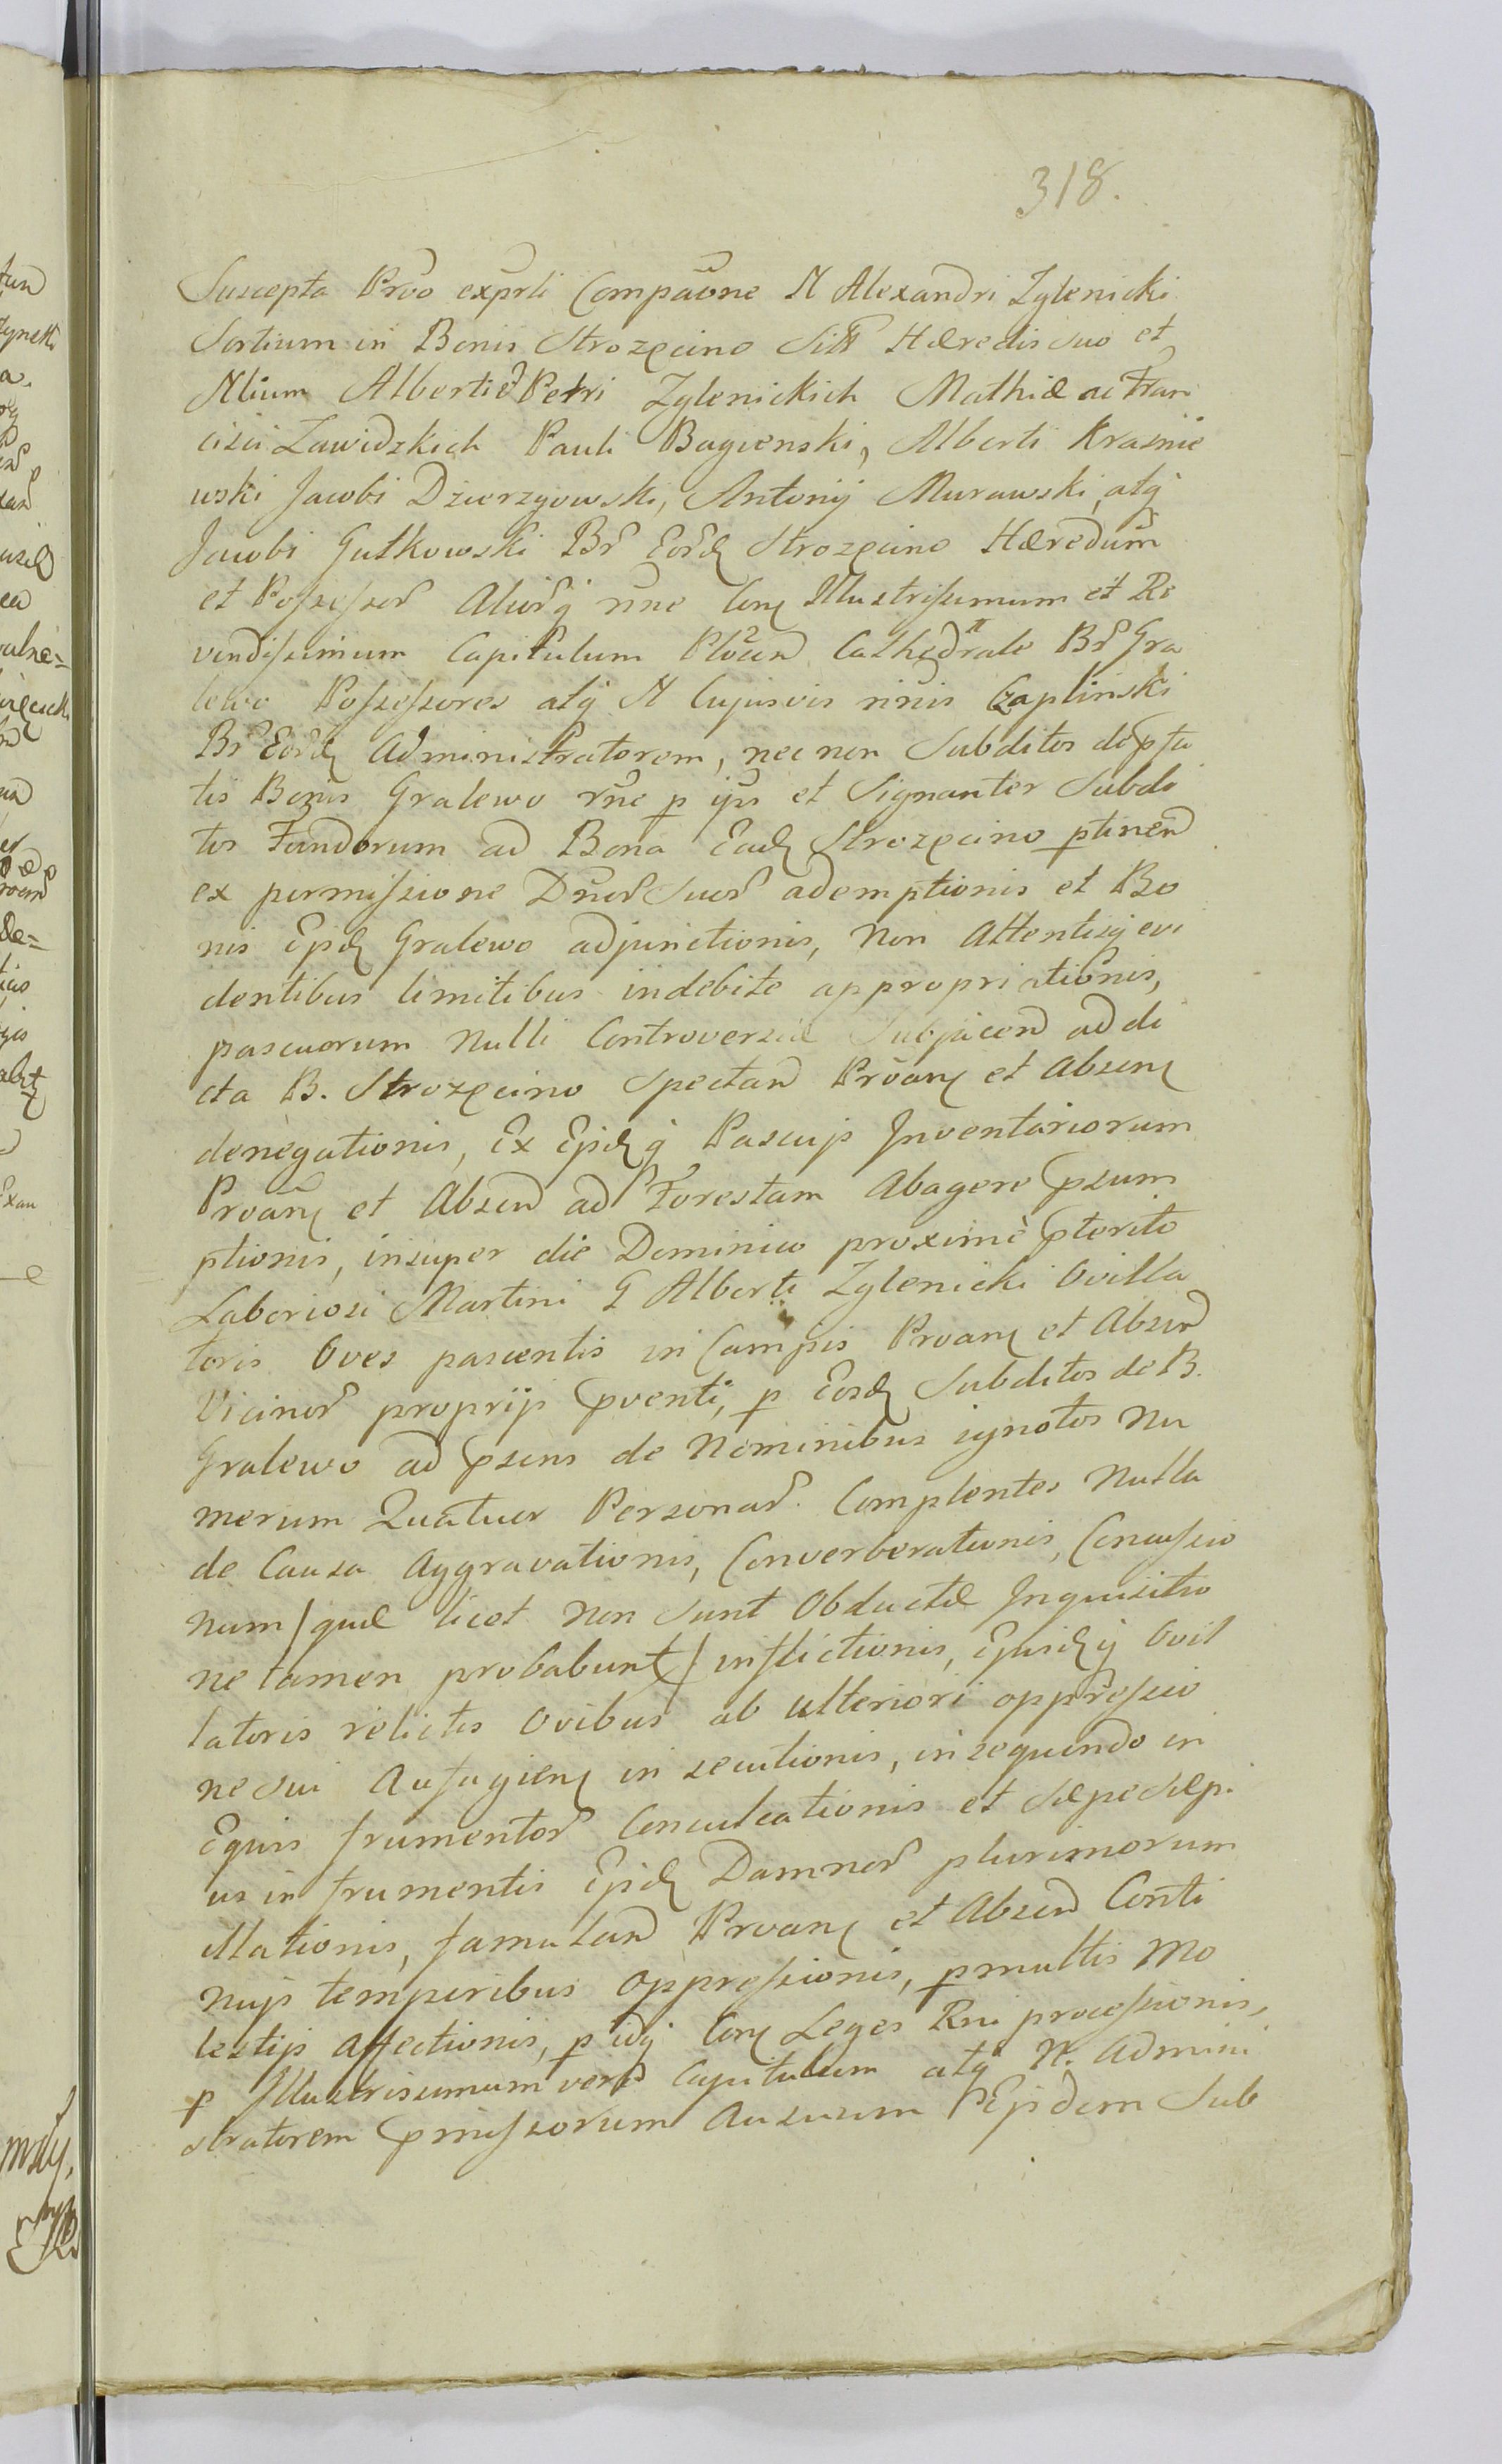 318.
Suscepta Prvo exprli Compaõne N Alexandri Zglenicki
Sortium in Bonis Strozęcino Sitt Hæredis suo et
Nlium Alberti & Petri Zglenickich Mathiæ ac Fran
cisci Zawidzkich Pauli Bagienski, Alberti Krasnie
wski Jacobi Dzierzgowski, Antonij Murawski, atq
Jacobi Gutkowski Br Eord Strozęcino Hæredum
et Possessor Aliorq nne Con Illustrissimum et Re
vendissimum Capitulum Plocen Cathedrale Br Gra
lewo Possessores atq N Cujusvis ninis Czaplinski
Br Eord Administratorem, nec non Subditos de pta
tis Bonis Gralewo rne p ips et Signanter Subdi
tos Fundorum ad Bona Ead Strozęcino ptinen
ex permissione Dnor Suor ademptionis et Bo
nis Epid Gralewo adjunctionis, Non Attentisq evi
dentibus limitibus indebite appropriationis,
pascuorum Nulli Controversiæ Subjacen ad di
cta B. Strozęcino Spectan Prõan et Absen
denegationis, Ex Epid q Pascujs Inventariorum
Proan et Absen ad Forestam Abagere psum
ptionis, insuper die Dominico proxime pterito
Laboriosi Martini G Alberti Zglenicki Ovilla
toris Oves pascentis in Campis Proan et Absen
Vicinor proprijs pventi, p Eosd Subditos de B.
Gralewo ad psens de Nominibus ignotos Nu
merum Quatuor Personar Complentes Nulla
de Causa Aggravationis, Converberationis, Concussio
num / quæ licet Non Sunt Obductæ Inquisitio
ne tamen probabunt / inflictionis, Ejusd q Ovil
latoris relictis Ovibus ab Ulteriori oppressio
ne sui Aufugien in secutionis, in sequendo in
Equis frumentor Conculcationis et Sæpe Sæpi
us in frumentis Epid Damnor plurimorum
illationis, famulan Proan et Absen Conti
nujs temporibus Oppressionis, pmultis Mo
lestijs Affectionis, p idq Con Leges Rni processionis,
p Illustrissimum vero Capitulum atq N. Admini
stratorem pmissorum Ausuum Epidem Sub